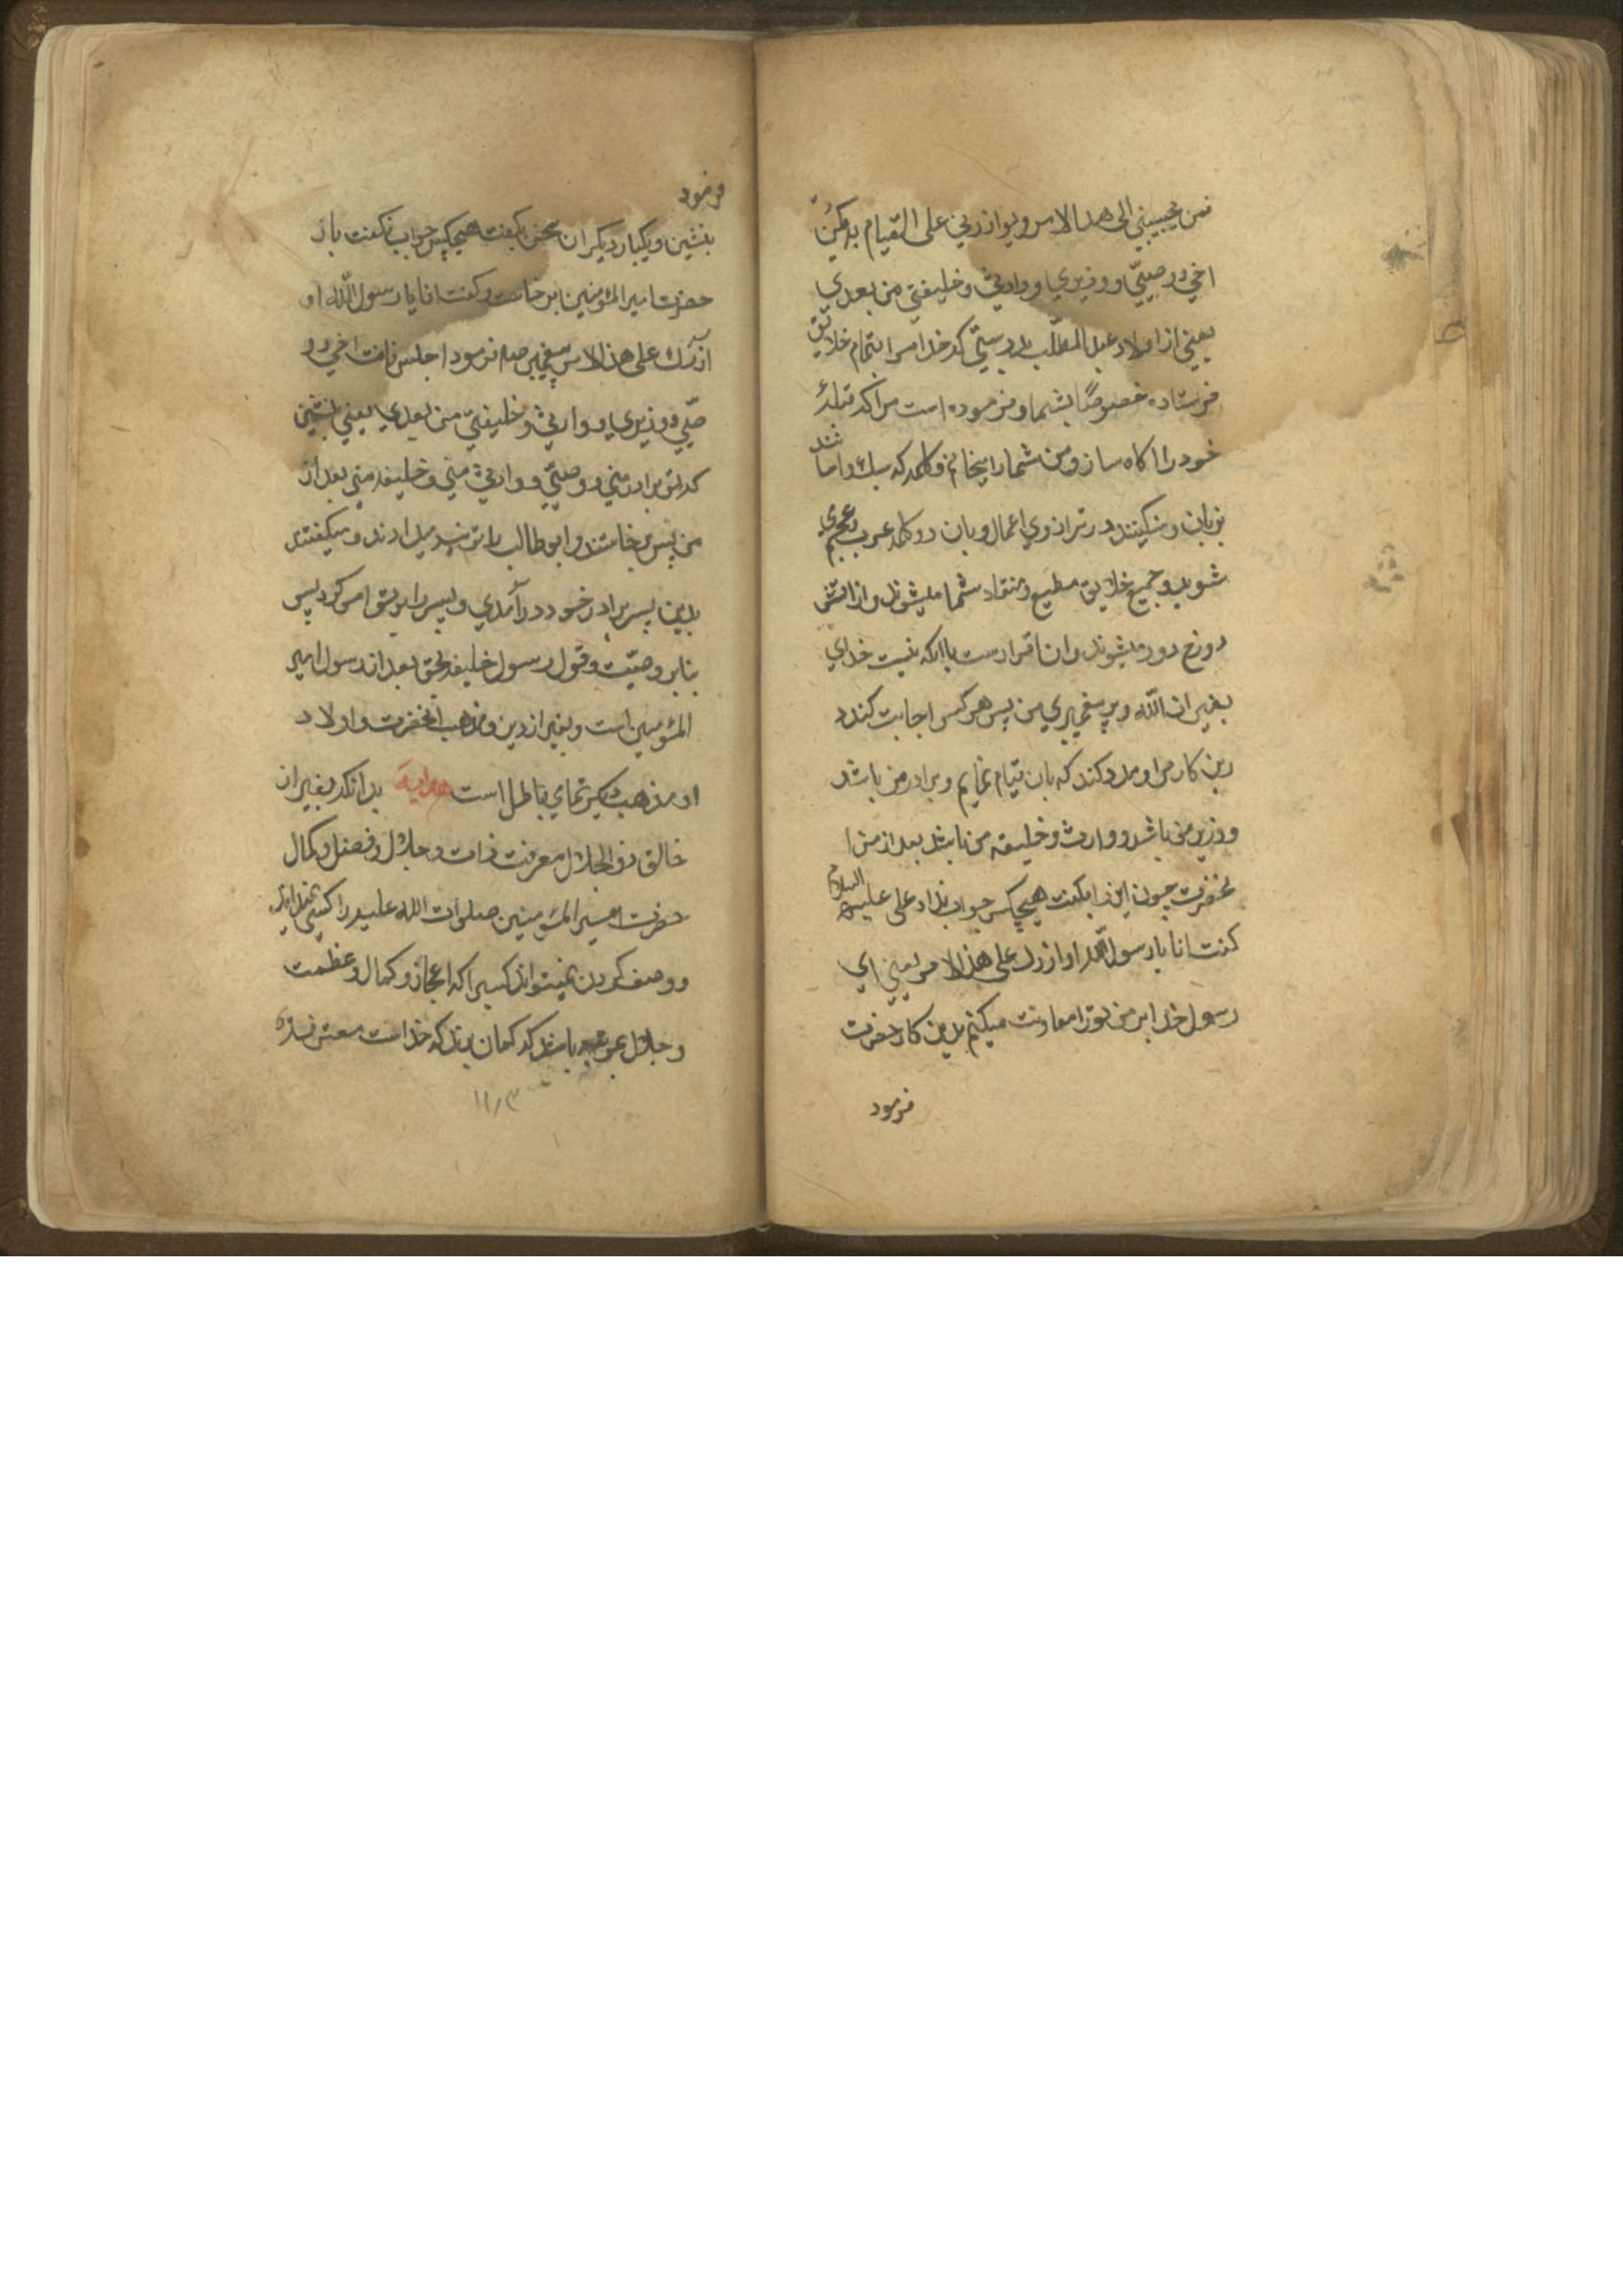 فمن يجيبني الى هذا الامر ويوازرني على القيام به يكن
اخي و وصيّي و وزيري و وارثي و خليفتي من بعدي
يعني از اولاد عبد المطّلب بدرستي كه خدا مرا بتمام خلايق
فرستاده خصوصًا بشما و فرموده است مرا كه قبيلهٔ
خود را اكاه ساز و من شما را ميخانم دو كلمه كه سبك و اسا
نند
بزبان و سنكينند در ترازوي اعمال و بان دو كلمه عرب عجم
شويد و جميع خلايق مطيع و منقاد شما ميشوند و از اتش
دوزخ دور ميشوند و ان اقرار است باانكه نيست خداي
بغير از الله و به پيغمبري من پس هر كس اجابت كند د
رين كار مرا و مدد كند كه بان قيام نمايم و برادر من باشد
و وزير من باشد و وارث و خليفه من باشد بعد از من ا
نحضرت چون اين را بكفت هيچكس جواب نداد على عليه
السلام
كفت انا يا رسول الله اوازرك على هذا الامر يعني اي
رسول خدا من تو را معاونت ميكنم بدين كار حضرت
فرمود
فرمود
بنشين و يكبار ديكر ان سخن بكفت هيچكس جواب نكفت باز
حضرت امير المؤمنين برخاست و كفت انا يا رسول الله او
ازرك على هذا الامر پيغمبر صه فرمود اجلس فانت اخي و و
صيّي و وزيري و وارثي و خليفتي من بعدي يعني بنشين
كه تو برادر مني و وصيّي و وارث مني و خليفه مني بعد از
من پس برخاستند و ابو طالب را ميدادند و ميكفتند
بدين پسر برادر خود درآمدي و پسر را بر تو امر كرد پس
بنابر وصيّت و قول رسول خليفه بحق بعد از رسول امير
المؤمنين است و بغير از دين و مذهب انحضرت و اولاد
او مذهب ديكر تماي باطل است هدايه بدانكه بغير از
خالق ذو الجلال معرفت ذات و جلال و فضل و كمال
حضرت امير المؤمنين صلوات الله عليه را كسي نميداند
و وصف كردن نميتواند كسيرا كه اعجاز و كمال و عظمت
و جلال بمرتبه باشد كه كمان برند كه خداست